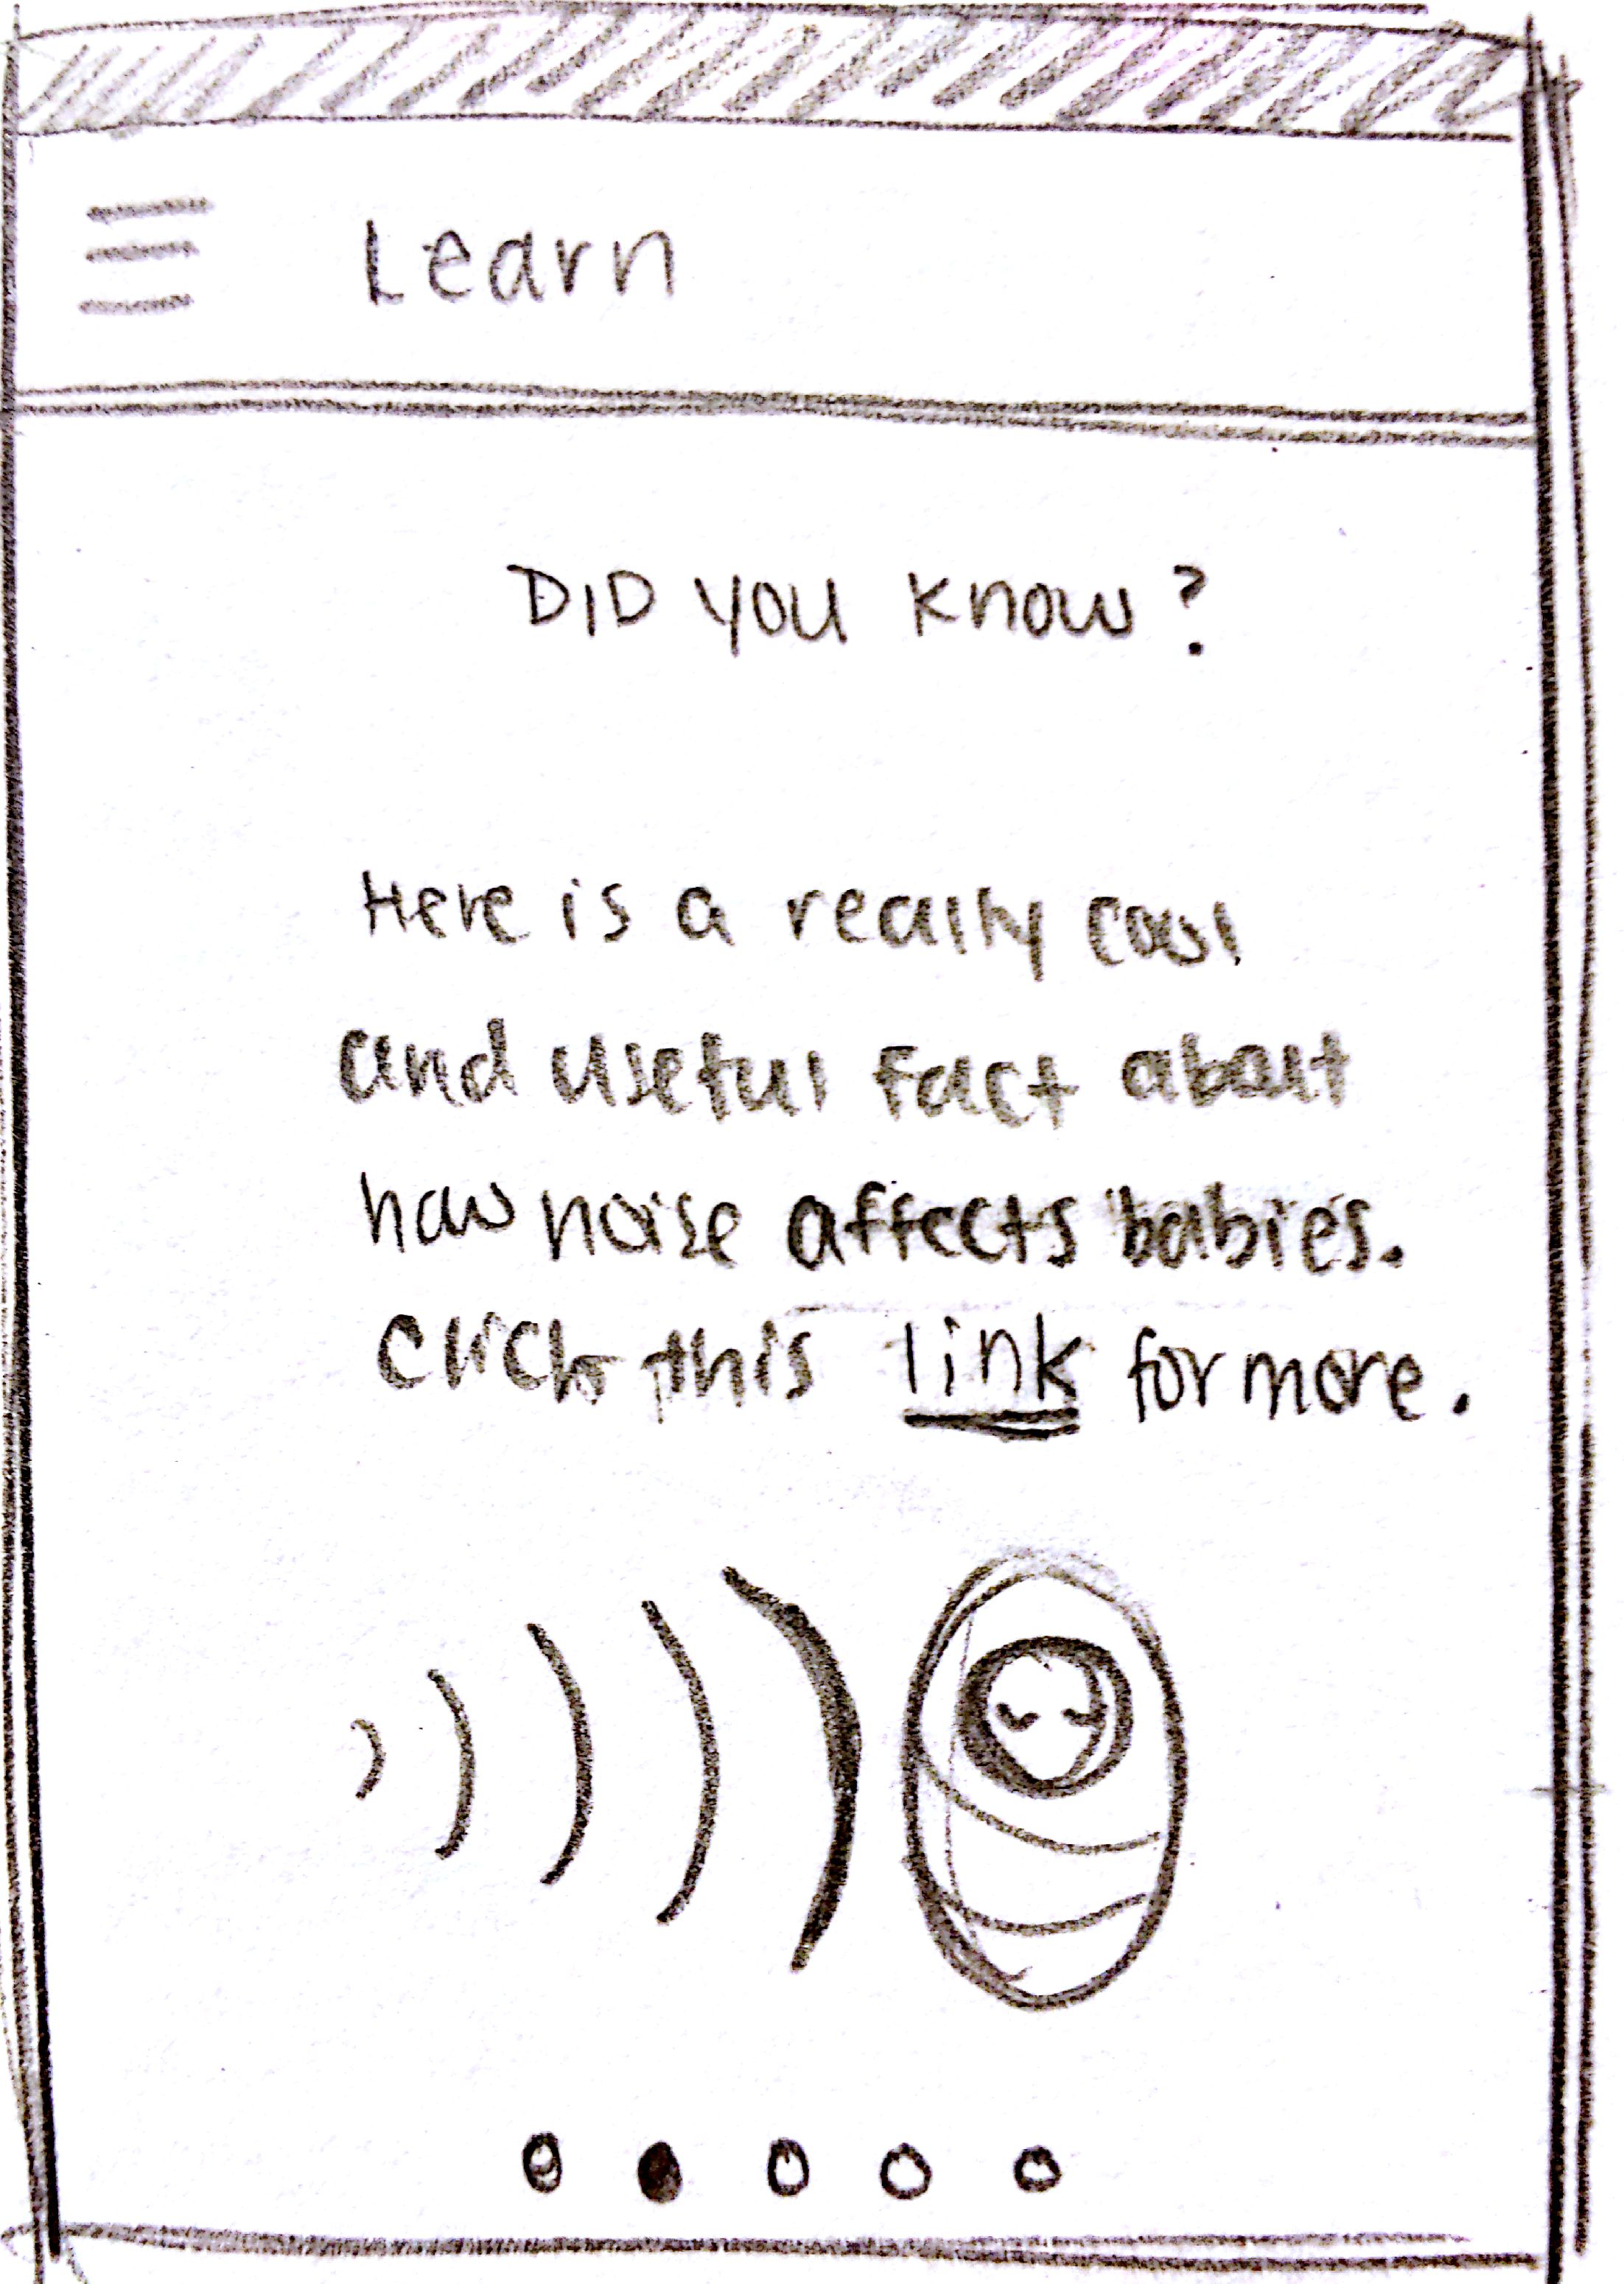 Learn
DID YOU KNOW?
Here is a really cool
and useful fact about
how noise affects babies.
Click this link for more.